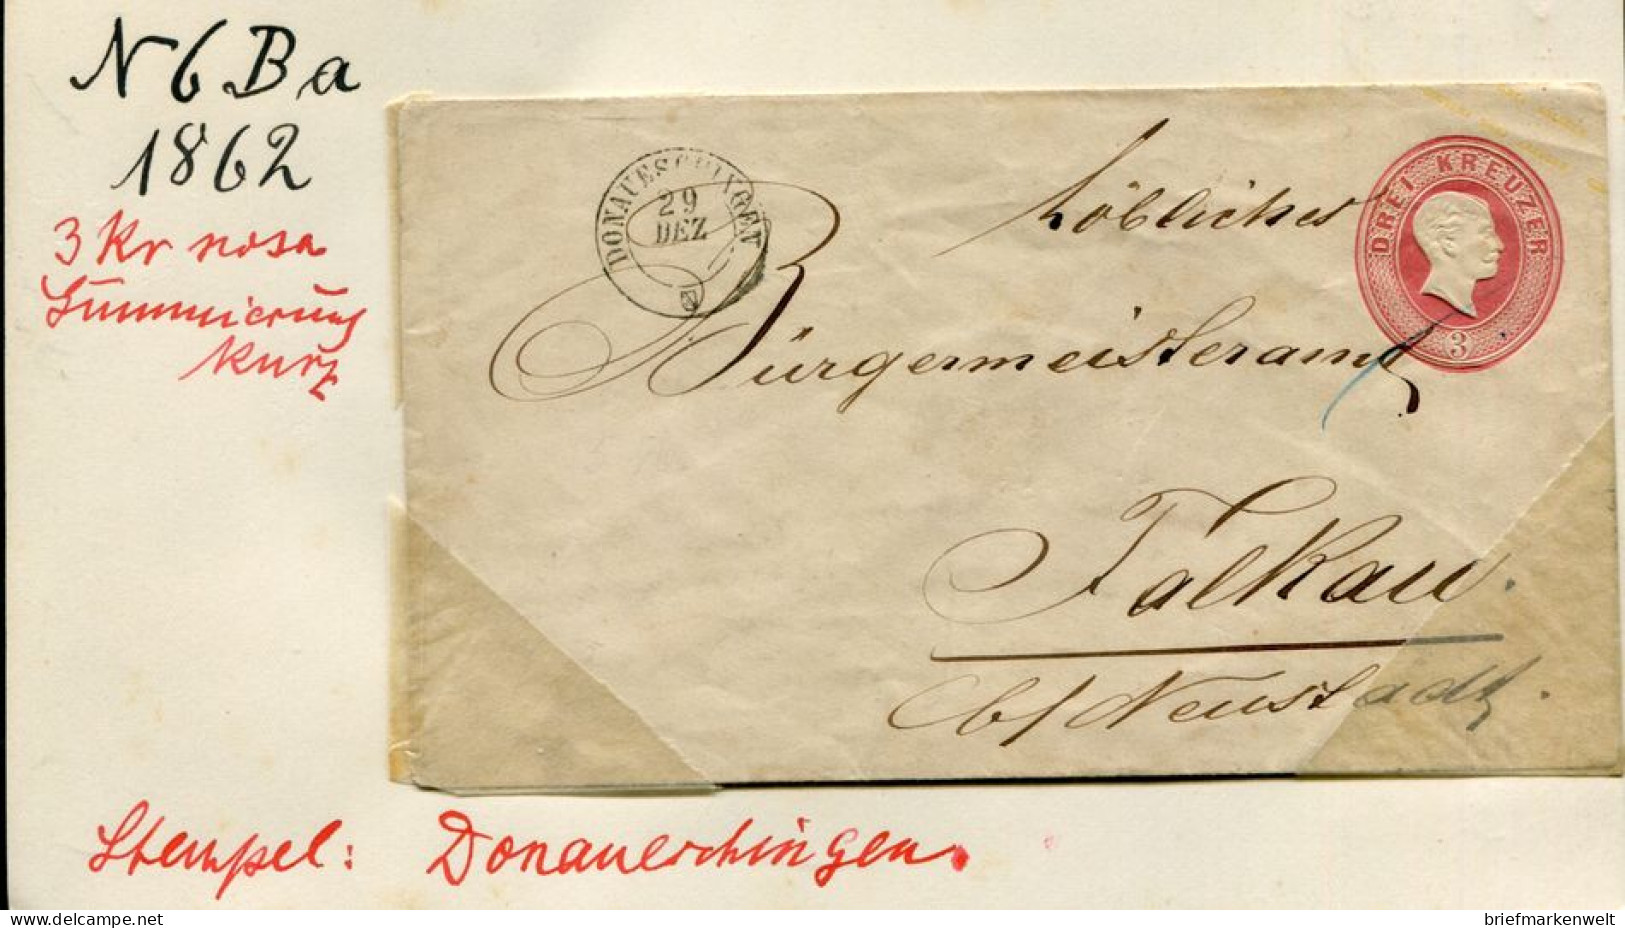 N 6 B a
1862
3 Kr rosa
Gummierung
kurz
DONAUESCHINGEN.
29
DEZ
DREI KREUZER
3
Löbliches
Bürgermeisteramt
Falkau.
b/Neustadt.
Stempel: Donaueschingen.
www.delcampe.net
briefmarkenwelt